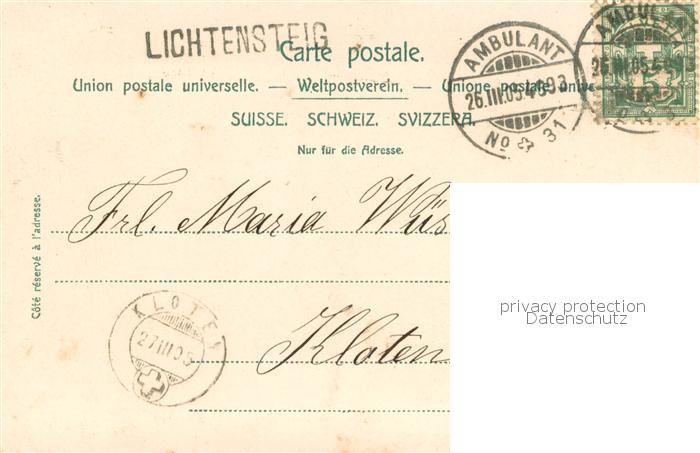 LICHTENSTEIG
Carte postale.
Union postale universelle. — Weltpostverein. — Unione postale unive
SUISSE. SCHWEIZ. SVIZZERA.
Nur für die Adresse.
AMBULANT
26.III.05.4893
No 31
AMBULANT
Côté réservé à l'adresse.
Frl. Maria Wüs
KLOTEN
27III05
Kloten
privacy protection
Datenschutz